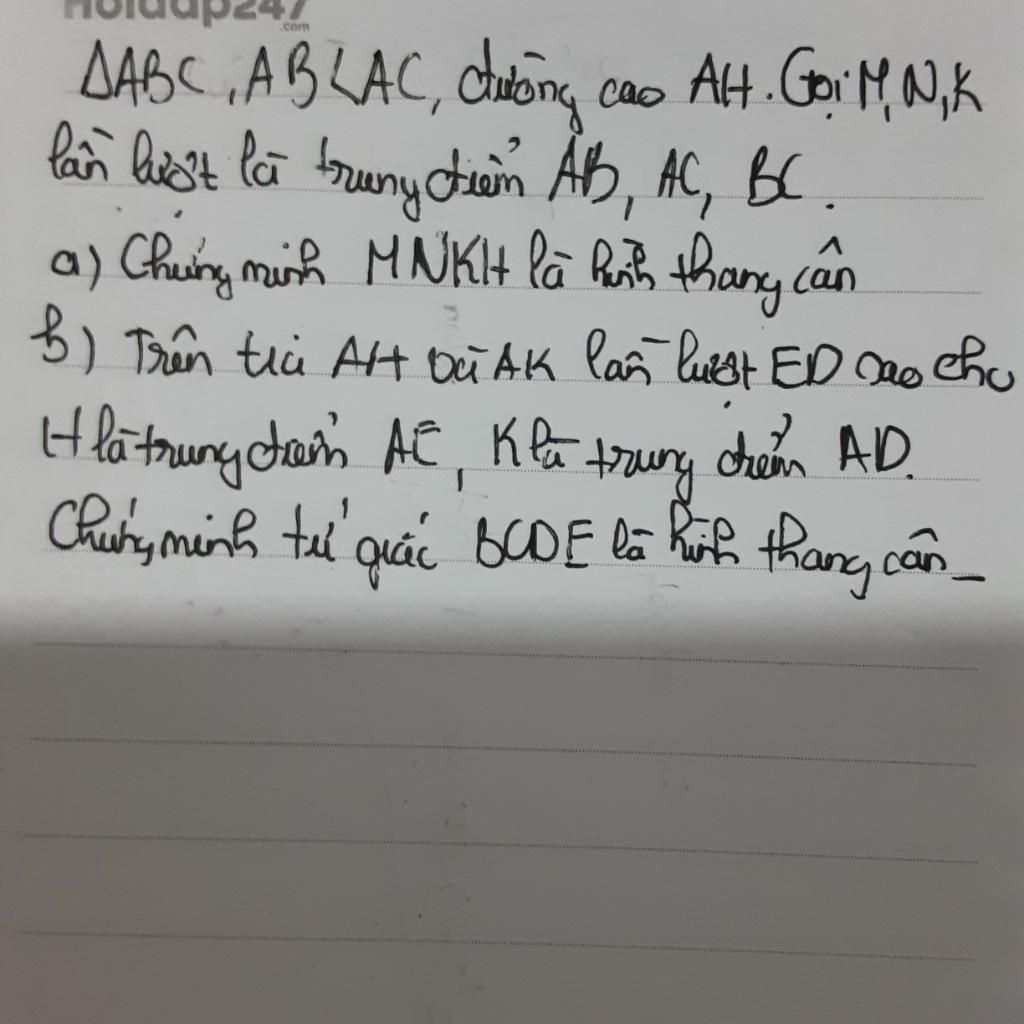 Hoidap247
.com
ΔABC, AB<AC, đường cao AH. Gọi M, N, K
lần lượt là trung điểm AB, AC, BC.
a) Chứng minh MNKH là hình thang cân
b) Trên tia AH và AK lần lượt ED sao cho
H là trung điểm AE, K là trung điểm AD.
Chứng minh tứ giác BCDE là hình thang cân_